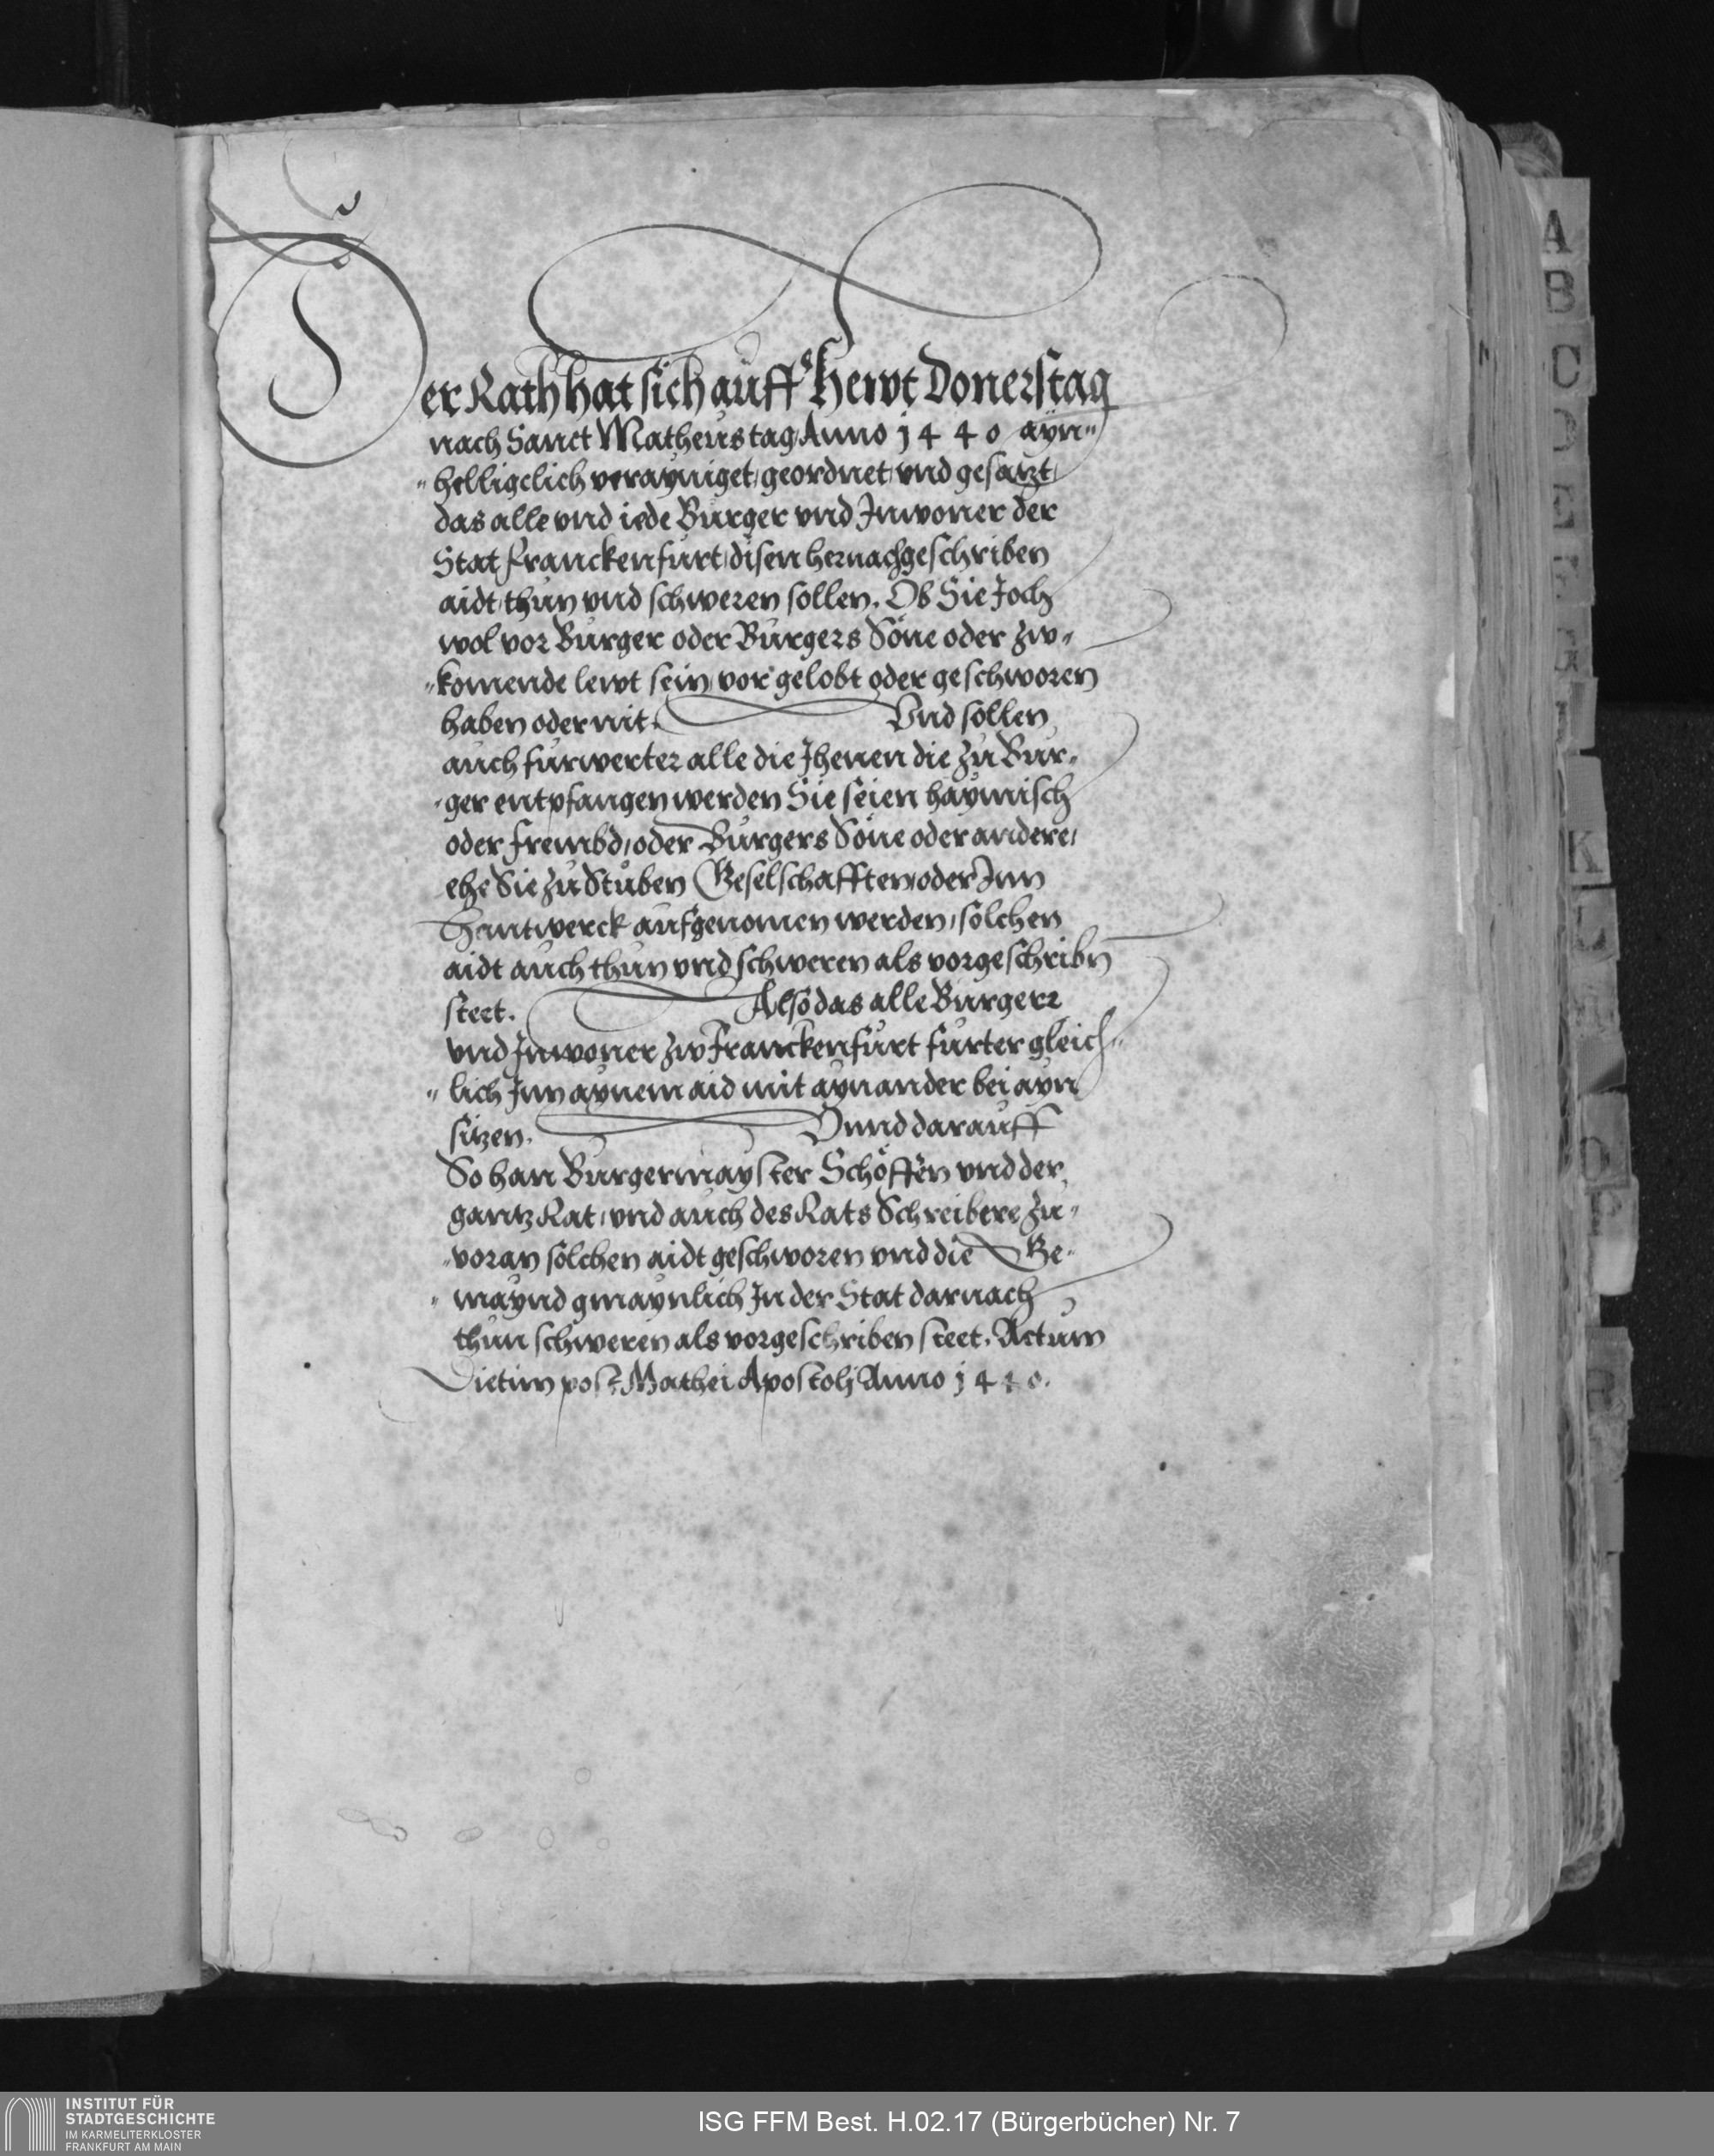 Der Rath hat sich auff hewt Donerstag
nach Sanct Matheus tag Anno 1440 ayn„
„helligclich verayniget, geordnet, vnd gesatzt,
das alle vnd iede Burger vnd Inwoner der
Stat Franckenfurt, disen hernachgeschriben
aidt, thun vnd schweren sollen. Ob Sie Joch
wol vor Burger oder Burgers Söne oder zw„
„komende lewt sein, vor gelobt oder geschworen
haben oder nit. Vnd sollen
auch furwerter alle die Jhenen die zu Bur„
„ger entpfangen werden Sie seien haymisch
oder frembd, oder Burgers Söne oder andere,
ehe Sie zu Stuben Geselschafften, oder Inn
Hantwerck aufgenomen werden, solchen
aidt auch thun vnd schweren als vorgeschribn
steet. Also das alle Burgere
vnd Inwoner zw Franckenfurt furter gleich„
„lich Inn aynem aid mit aynander bei ayn
sitzen. Vnnd darauff
So han Burgermayster Schöffen vnd der
gantz Rat, vnd auch des Rats Schreibere zu„
„voran solchen aidt geschworen vnd die Ge„
„maynd gmaynlich In der Stat darnach
thun schweren als vorgeschriben steet. Actum
Dictim post Mathei Apostolj Anno 1440.
A
B
C
D
E
F
G
I
K
L
O
P
R
INSTITUT FÜR
STADTGESCHICHTE
IM KARMELITERKLOSTER
FRANKFURT AM MAIN
ISG FFM Best. H.02.17 (Bürgerbücher) Nr. 7